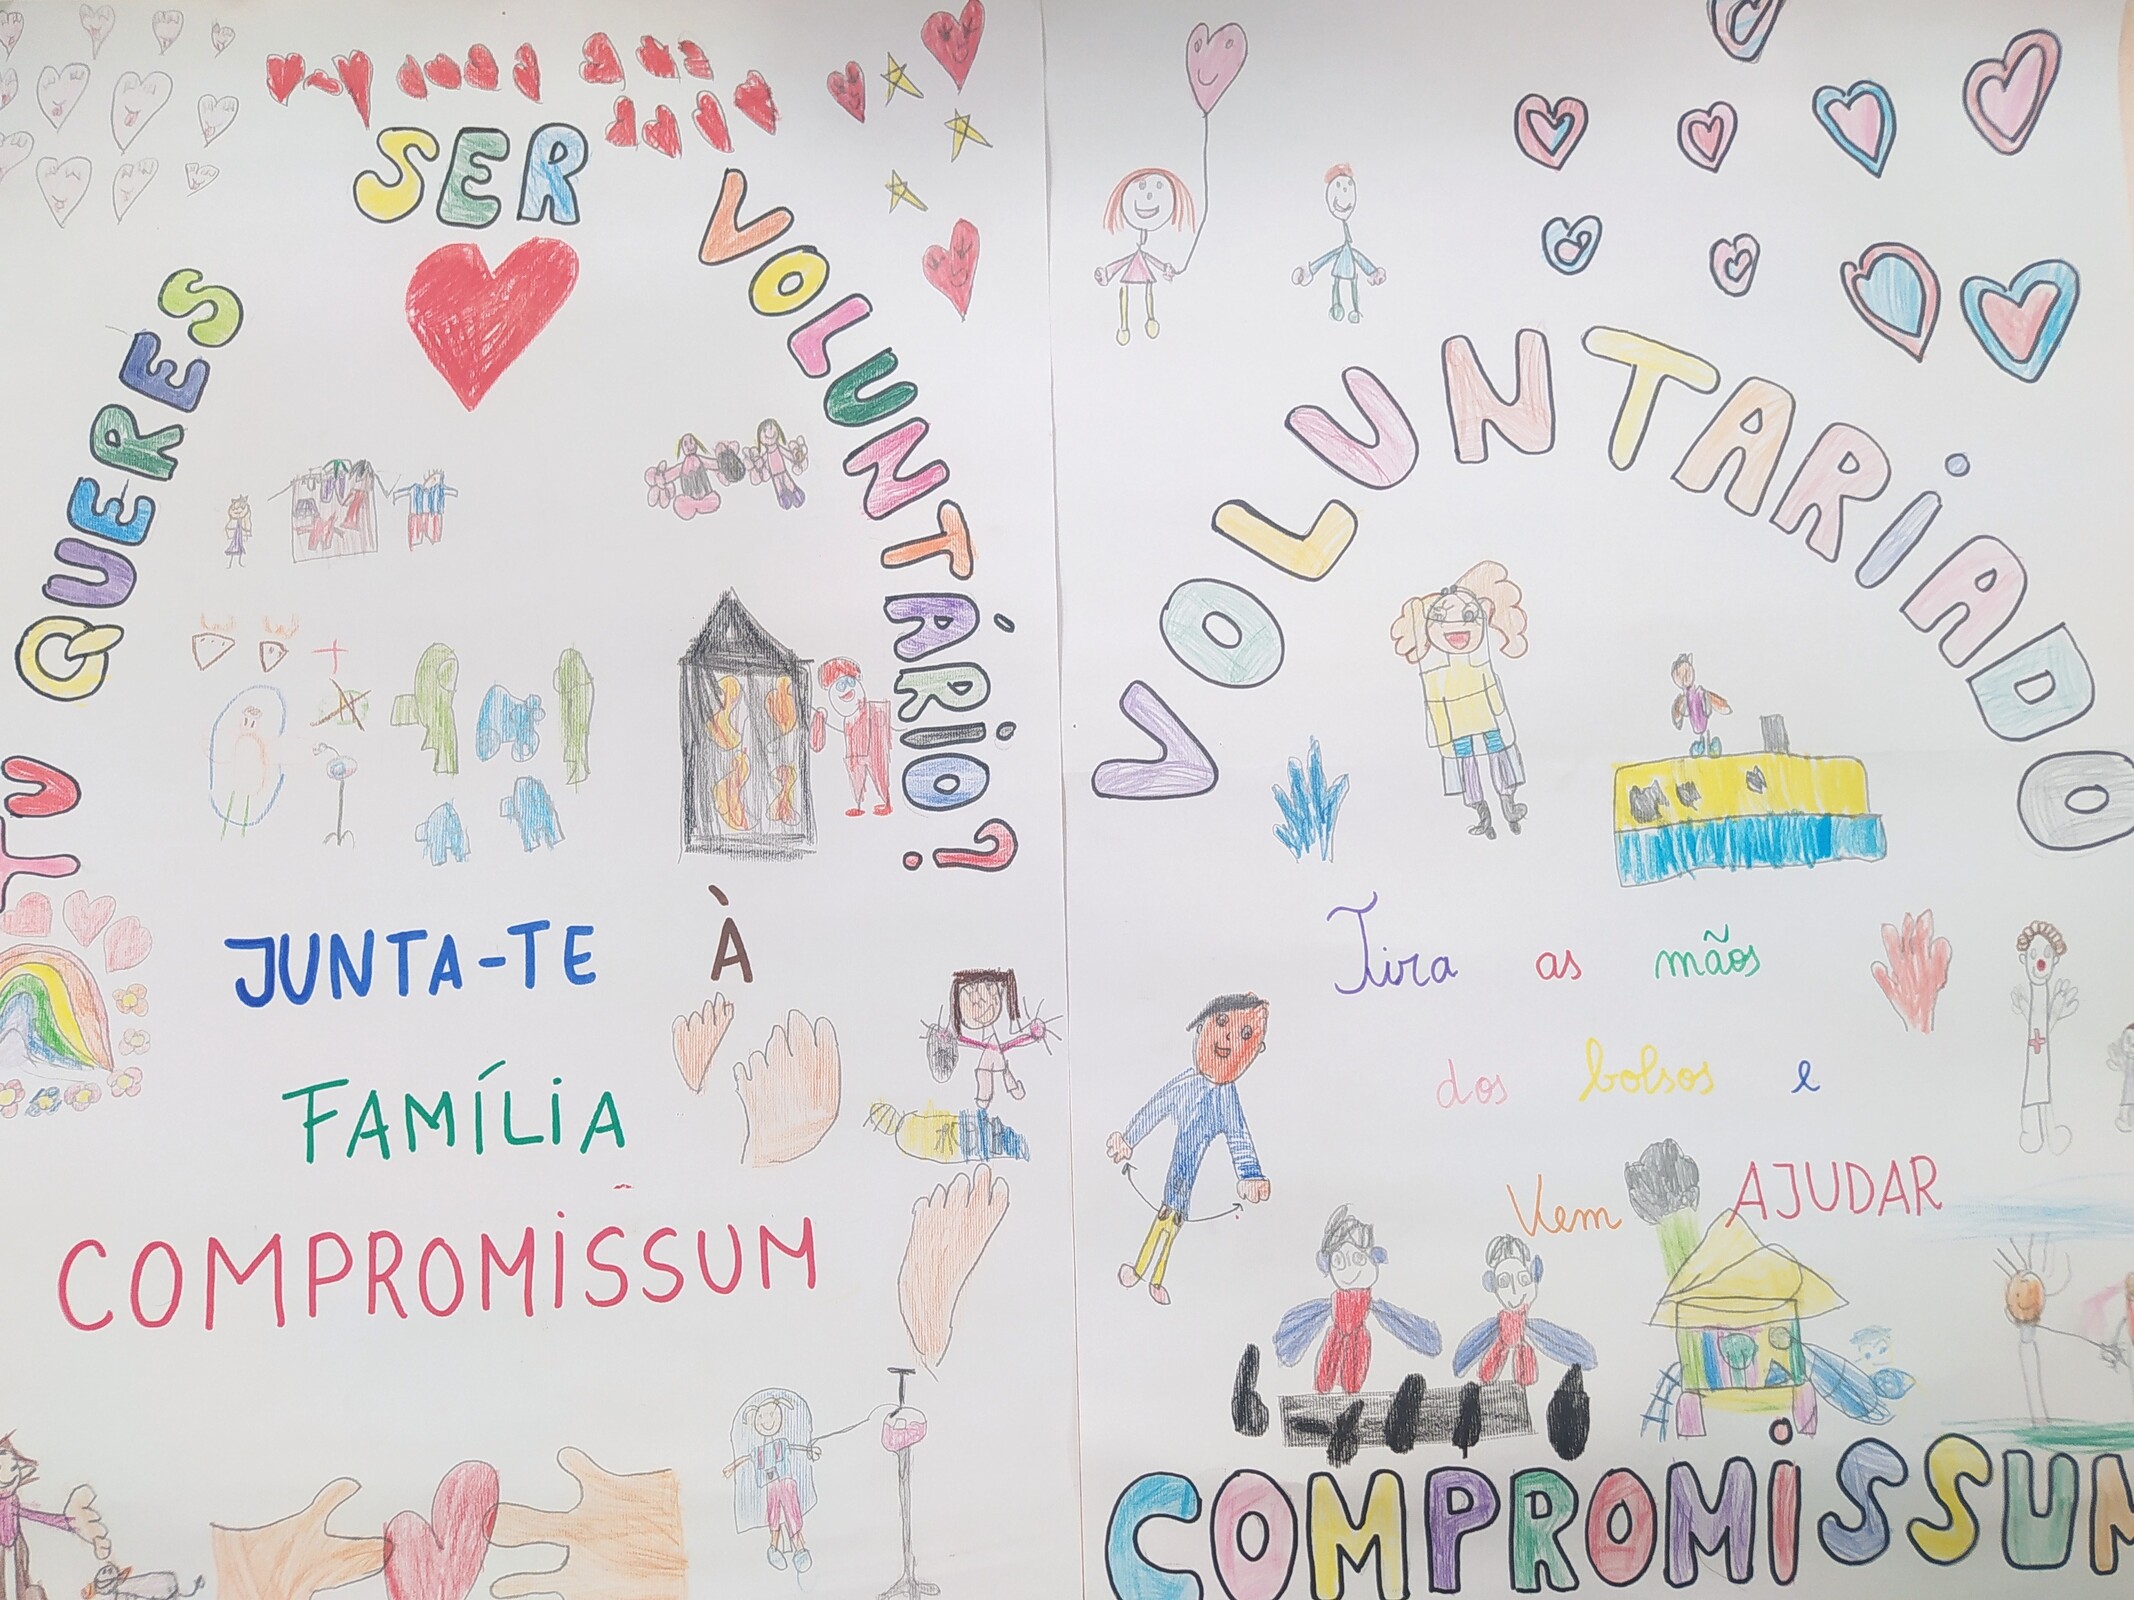 TU QUERES SER VOLUNTÁRIO?
JUNTA-TE À
FAMÍLIA
COMPROMISSUM
VOLUNTARIADO
Tira as mãos
dos bolsos e
Vem AJUDAR
COMPROMISSUM